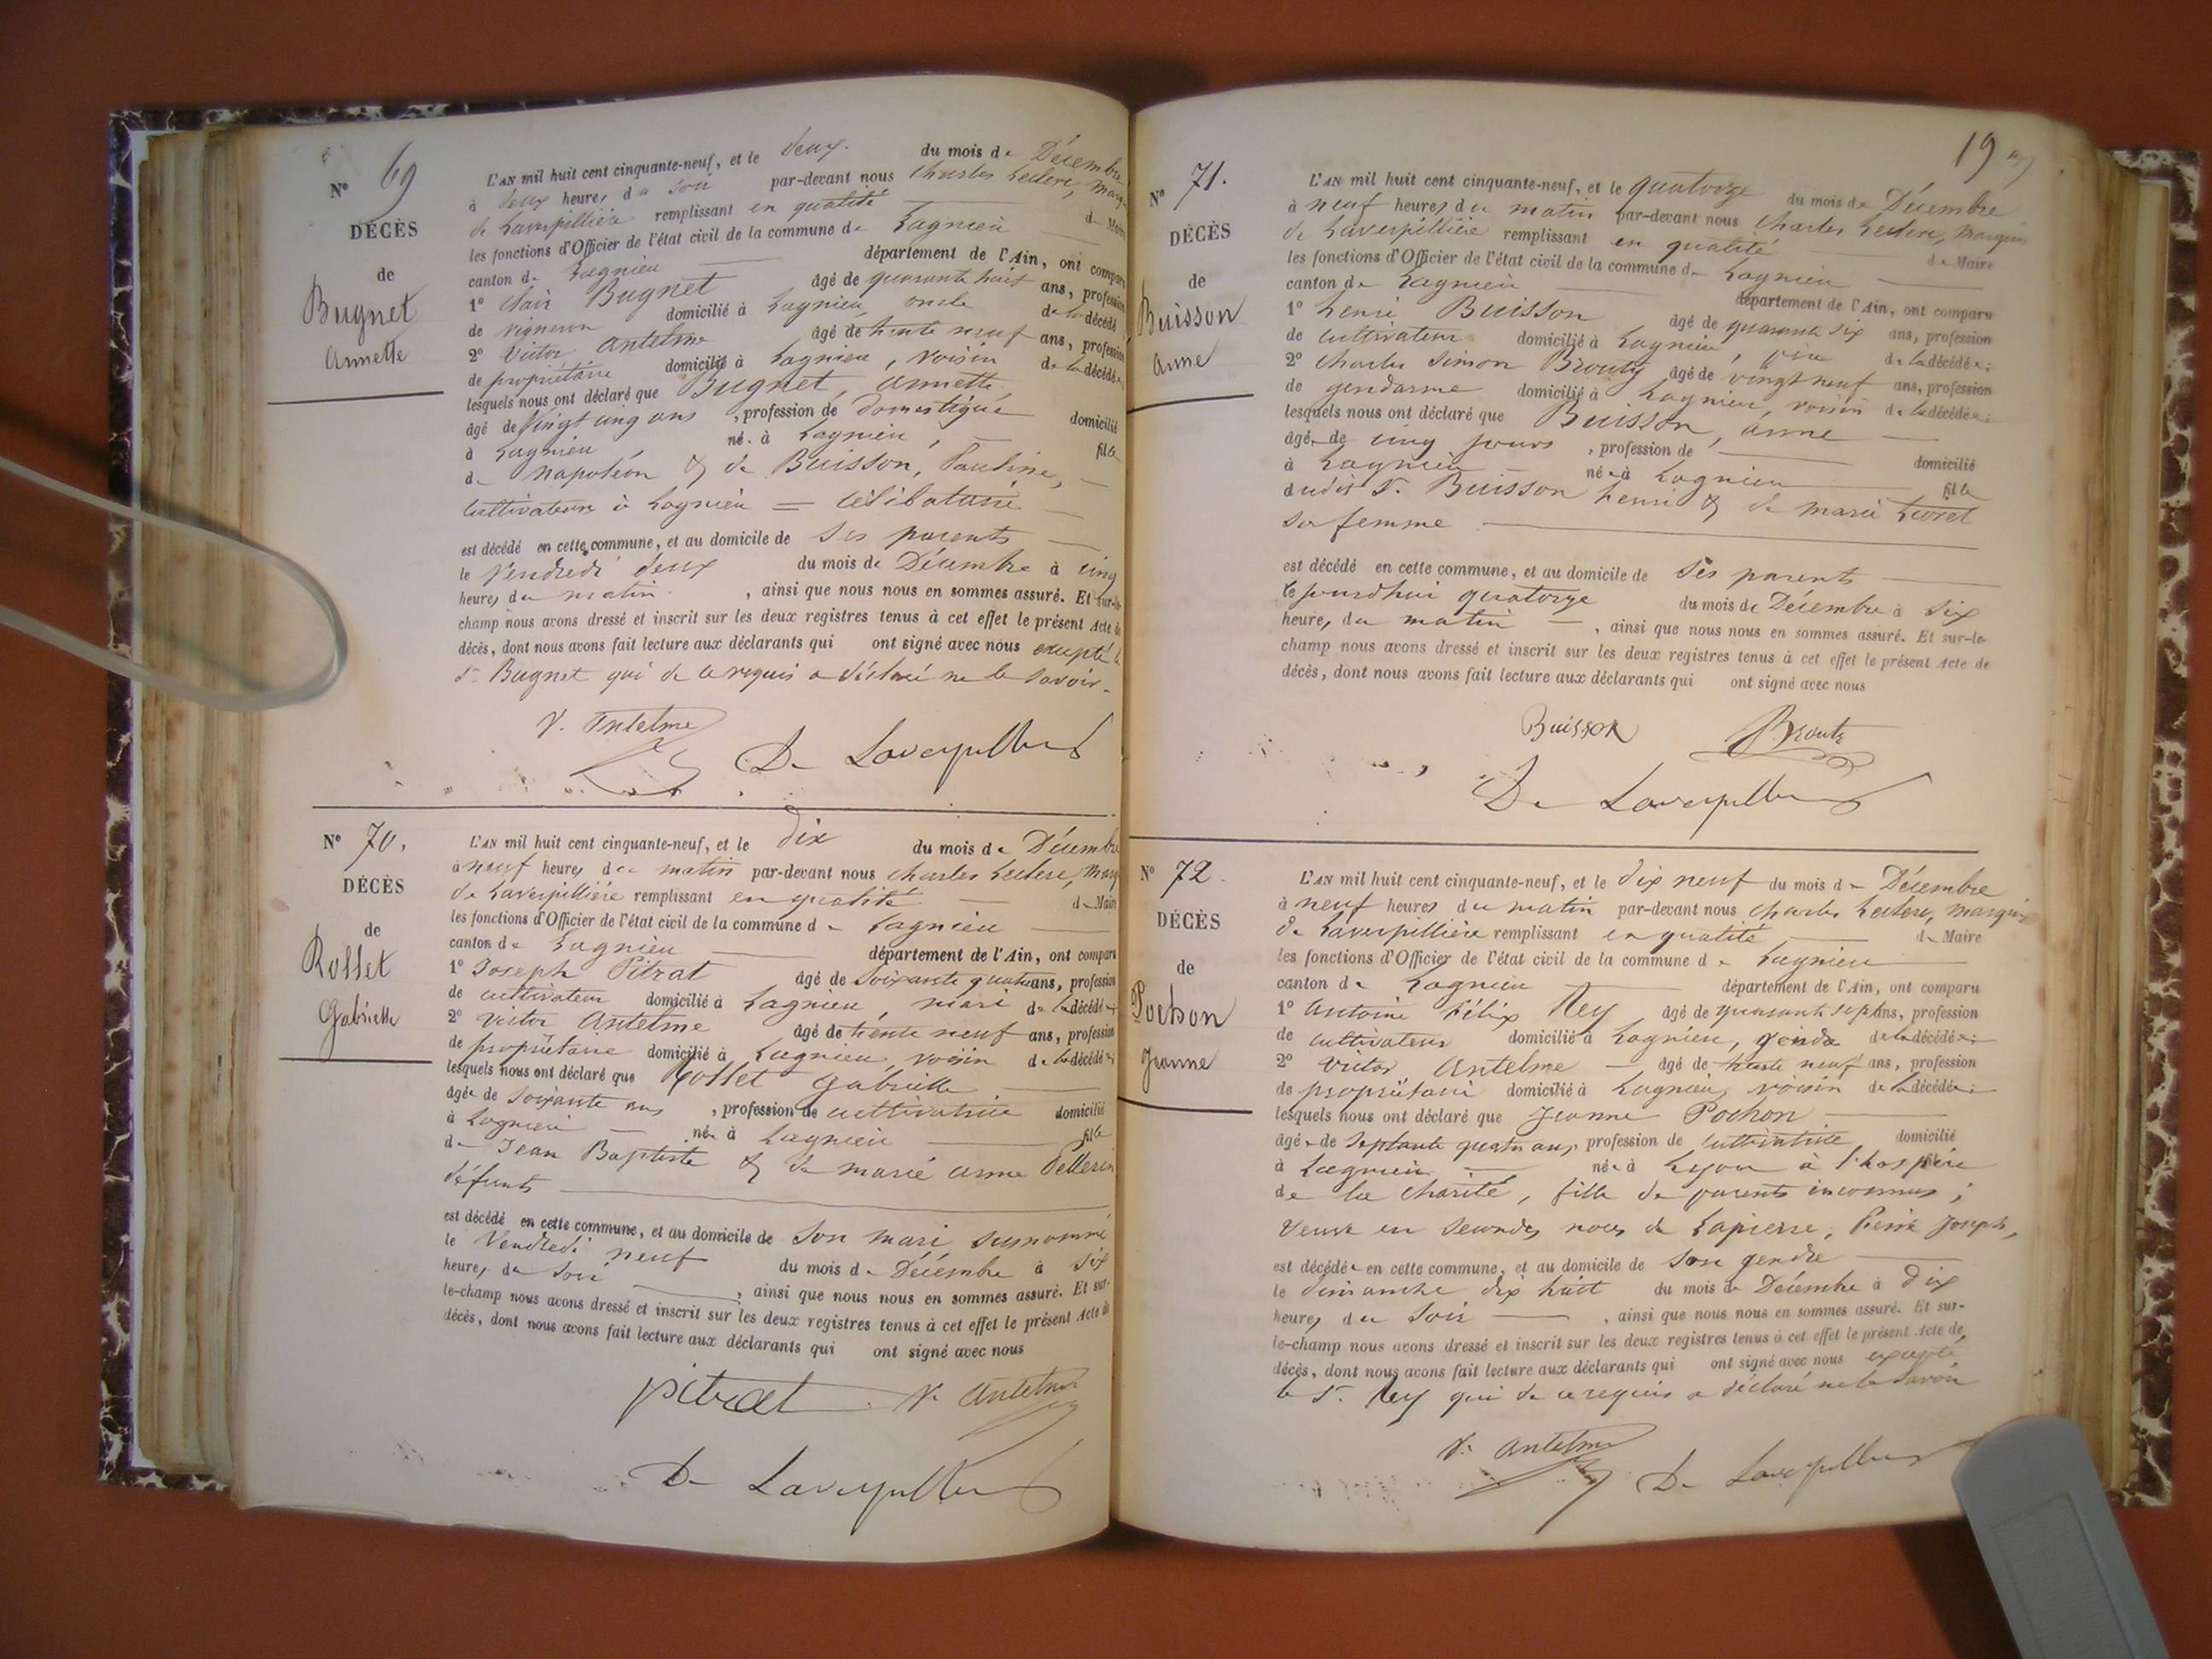 Nº 69
DÉCÈS
de
Bugnet
Annette
L'AN mil huit cent cinquante-neuf, et le deux du mois de Décembre
à deux heures du soir par-devant nous Charles Leclerc, Marq
de Laverpillière remplissant en qualité de Maire
les fonctions d'Officier de l'état civil de la commune de Lagnieu
canton de Lagnieu département de l'Ain, ont comparu
1º Clair Bugnet âgé de quarante huit ans, profession
de vigneron domicilié à Lagnieu, oncle de la décédé
2º Victor Antelme âgé de trente neuf ans, profession
de propriétaire domicilié à Lagnieu, voisin de la décédée
lesquels nous ont déclaré que Bugnet, Annette
âgé de Vingt cinq ans, profession de Domestique domicilié
à Lagnieu né à Lagnieu, fille
de Napoléon & de Buisson, Pauline,
Cultivateurs à Lagnieu = célibataire
est décédé en cette commune, et au domicile de ses parents
le Vendredi deux du mois de Décembre à cinq
heures du matin, ainsi que nous nous en sommes assuré. Et sur-le-
champ nous avons dressé et inscrit sur les deux registres tenus à cet effet le présent Acte de
décès, dont nous avons fait lecture aux déclarants qui ont signé avec nous excepté le
Sr Bugnet qui de ce requis a déclaré ne le savoir.
V. Antelme
De Laverpillière
Nº 70.
DÉCÈS
de
Rollet
Gabrielle
L'AN mil huit cent cinquante-neuf, et le dix du mois de Décembre
à neuf heures du matin par-devant nous Charles Leclerc, Marq
de Laverpillière remplissant en qualité de Maire
les fonctions d'Officier de l'état civil de la commune de Lagnieu
canton de Lagnieu département de l'Ain, ont comparu
1º Joseph Pitrat âgé de soixante quatre ans, profession
de cultivateur domicilié à Lagnieu, mari de la décédée
2º Victor Antelme âgé de trente neuf ans, profession
de propriétaire domicilié à Lagnieu, voisin de la décédée;
lesquels nous ont déclaré que Rollet Gabrielle
âgée de soixante ans, profession de cultivatrice domicilié
à Lagnieu née à Lagnieu fille
de Jean Baptiste & de Marie Anne Pellerin
défunts
est décédé en cette commune, et au domicile de son mari susnommé
le Vendredi neuf du mois de Décembre à six
heures du soir, ainsi que nous nous en sommes assuré. Et sur-
le-champ nous avons dressé et inscrit sur les deux registres tenus à cet effet le présent Acte de
décès, dont nous avons fait lecture aux déclarants qui ont signé avec nous
pitrat V. Antelme
De Laverpillière
19
Nº 71.
DÉCÈS
de
Buisson
Anne
L'AN mil huit cent cinquante-neuf, et le quatorze du mois de Décembre
à neuf heures du matin par-devant nous Charles Leclerc, Marquis
de Laverpillière remplissant en qualité de Maire
les fonctions d'Officier de l'état civil de la commune de Lagnieu
canton de Lagnieu département de l'Ain, ont comparu
1º Henri Buisson âgé de quarante six ans, profession
de cultivateur domicilié à Lagnieu, père de la décédée;
2º Charles Simon Brouty âgé de vingt neuf ans, profession
de gendarme domicilié à Lagnieu, voisin de la décédée;
lesquels nous ont déclaré que Buisson, Anne
âgée de cinq jours, profession de domicilié
à Lagnieu née à Lagnieu fille
dudit Sr. Buisson Henri & de Marie
sa femme
est décédé en cette commune, et au domicile de ses parents
le jourdhui quatorze du mois de Décembre à six
heures du matin, ainsi que nous nous en sommes assuré. Et sur-le-
champ nous avons dressé et inscrit sur les deux registres tenus à cet effet le présent Acte de
décès, dont nous avons fait lecture aux déclarants qui ont signé avec nous
Buisson Brouty
De Laverpillière
Nº 72.
DÉCÈS
de
Pochon
Jeanne
L'AN mil huit cent cinquante-neuf, et le dix neuf du mois de Décembre
à neuf heures du matin par-devant nous Charles Leclerc, Marquis
de Laverpillière remplissant en qualité de Maire
les fonctions d'Officier de l'état civil de la commune de Lagnieu
canton de Lagnieu département de l'Ain, ont comparu
1º Antoine Félix Rey âgé de quarante sept ans, profession
de cultivateur domicilié à Lagnieu, gendre de la décédée;
2º Victor Antelme âgé de trente neuf ans, profession
de propriétaire domicilié à Lagnieu, voisin de la décédée;
lesquels nous ont déclaré que Jeanne Pochon
âgée de septante quatre ans, profession de cultivatrice, domicilié
à Lagnieu née à Lyon à l'hospice
de la charité, fille de parents inconnus;
veuve en secondes noces de Lapierre, Pierre Joseph,
est décédée en cette commune, et au domicile de son gendre
le dimanche dix huit du mois de Décembre à dix
heures du soir, ainsi que nous nous en sommes assuré. Et sur-
le-champ nous avons dressé et inscrit sur les deux registres tenus à cet effet le présent Acte de
décès, dont nous avons fait lecture aux déclarants qui ont signé avec nous excepté
le Sr. Rey qui de ce requis a déclaré ne le savoir
V. Antelme De Laverpillière